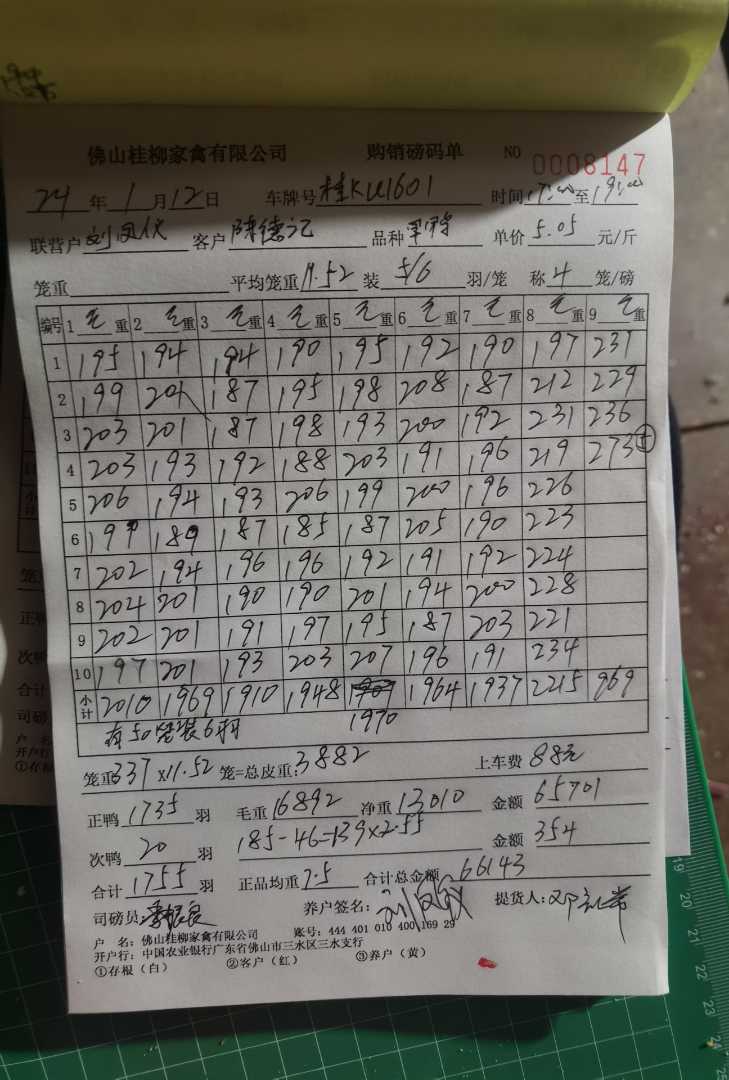 佛山桂柳家禽有限公司 购销磅码单 NO 0008147
24年1月12日 车牌号桂KU1601 时间17:00至19:00
联营户 客户陈德记 品种 单价5.05元/斤
笼重 平均笼重11.52装5/6羽/笼 称4笼/磅
编号 1毛重 2毛重 3毛重 4毛重 5毛重 6毛重 7毛重 8毛重 9毛重
1 195 194 194 190 195 192 190 197 231
2 199 201 187 195 198 208 187 212 229
3 203 201 187 198 193 200 192 231 236
4 203 193 192 188 203 191 196 219 273⑤
5 206 194 193 206 199 200 196 226
6 199 189 187 185 187 205 190 223
7 202 194 196 196 192 191 192 224
8 204 201 190 190 201 194 200 228
9 202 201 191 197 195 187 203 221
10 197 201 193 203 207 196 191 234
小计 2010 1969 1910 1948 1970 1964 1937 2215 969
有50笼装6羽
笼重337×11.52笼=总皮重:3882 上车费88元
正鸭1735羽 毛重16892净重13010 金额65701
次鸭20羽 185-46=139×2.55 金额354
合计1755羽 正品均重7.5 合计总金额66143
司磅员: 养户签名: 提货人:邓
户 名:佛山桂柳家禽有限公司 账号:444 401 010 400 169 29
开户行:中国农业银行广东省佛山市三水区三水支行
①存根(白) ②客户(红) ③养户(黄)